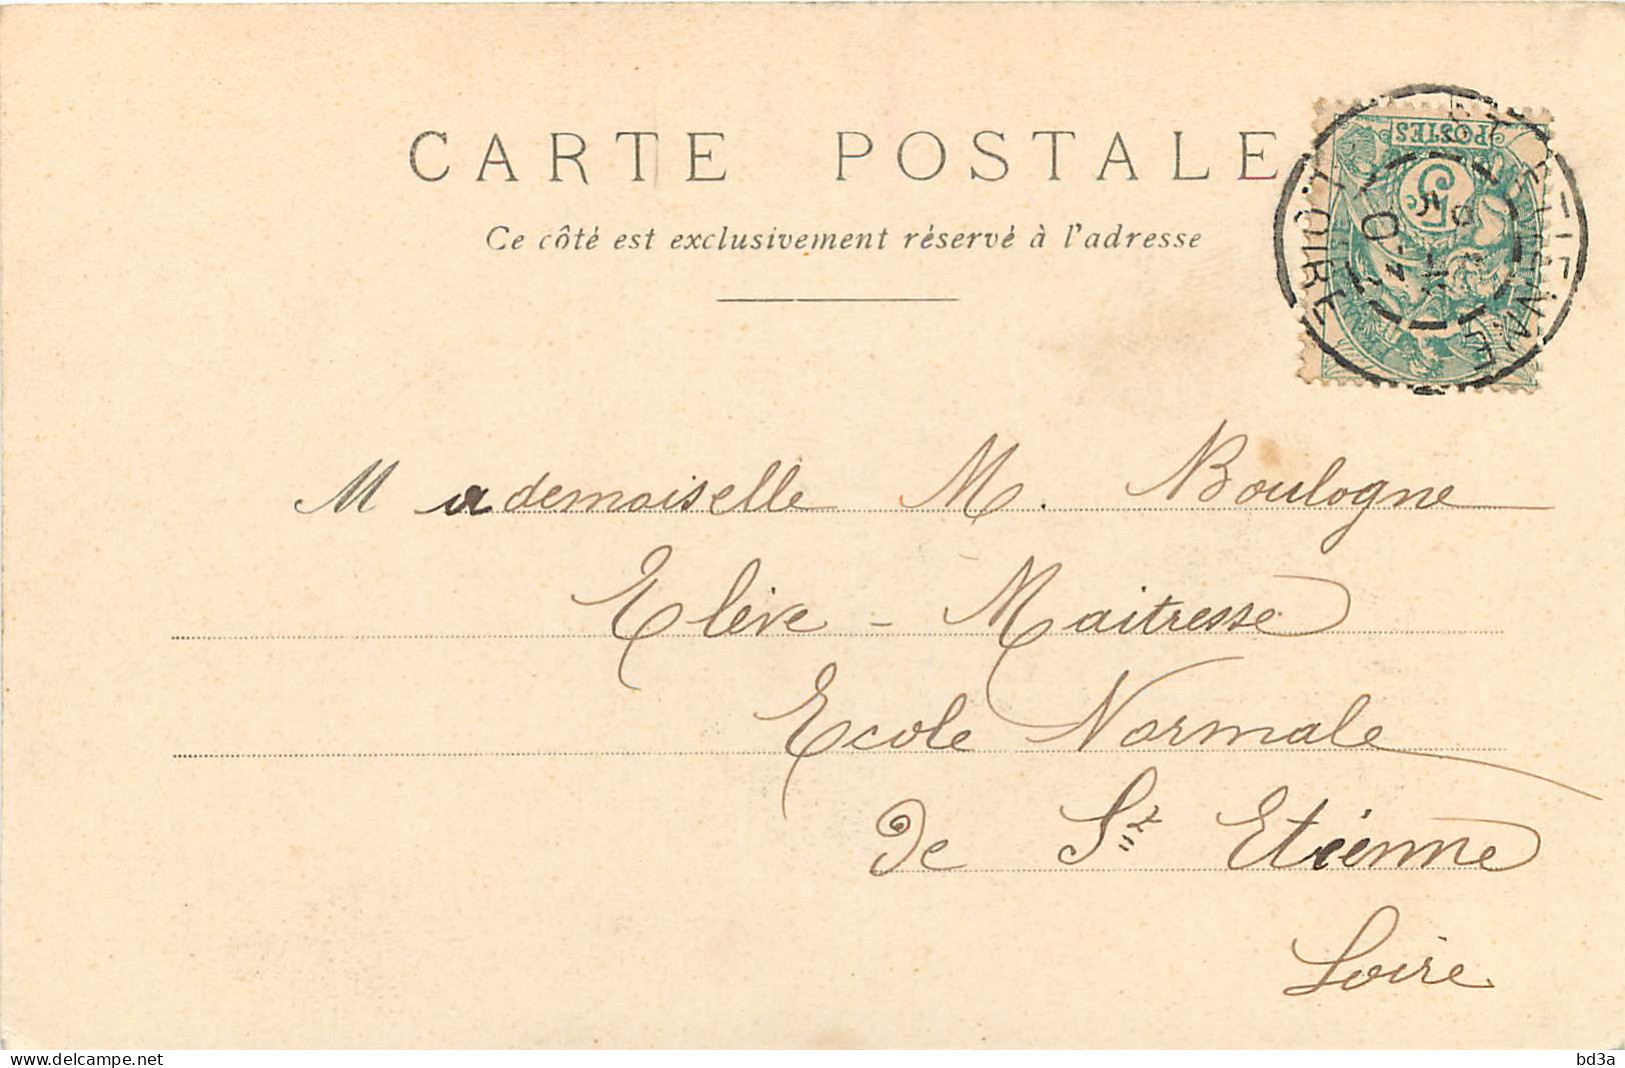 CARTE POSTALE
Ce côté est exclusivement réservé à l'adresse
POSTES
5c
ST ETIENNE
LOIRE
Mademoiselle M. Boulogne
Elève - Maitresse
Ecole Normale
de St Etienne
Loire
delcampe.net
bd3a